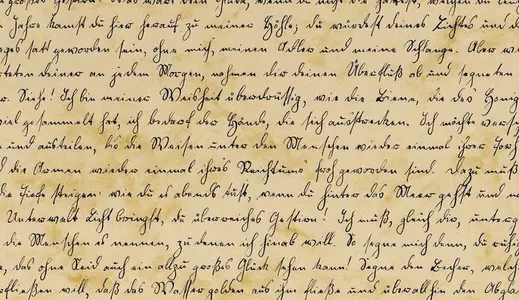 großes Gestirn! Was wäre dein Glück, wenn du nicht die hättest, welchen du leuch
Jahre kamst du hier herauf zu meiner Höhle; du würdest deines Lichtes und d
ges satt geworden sein, ohne mich, meinen Adler und meine Schlange. Aber w
teten deiner an jedem Morgen, nahmen dir deinen Überfluß ab und segneten
r. Siehe! Ich bin meiner Weisheit überdrüssig, wie die Biene, die des Honig
viel gesammelt hat, ich bedarf der Hände, die sich ausstrecken. Ich möchte versc
und austeilen, bis die Weisen unter den Menschen wieder einmal ihrer Torh
d die Armen wieder einmal ihres Reichtums froh geworden sind. Dazu muß
die Tiefe steigen: wie du es abends tust, wenn du hinter das Meer gehst und n
Unterwelt Licht bringst, du überreiches Gestirn! Ich muß, gleich dir, unterg
die Menschen es nennen, zu denen ich hinab will. So segne mich denn, du ruhig
e, das ohne Neid auch ein allzu großes Glück sehen kann! Segne den Becher, welch
rfließen will, daß das Wasser golden aus ihm fließe und überallhin den Abgla